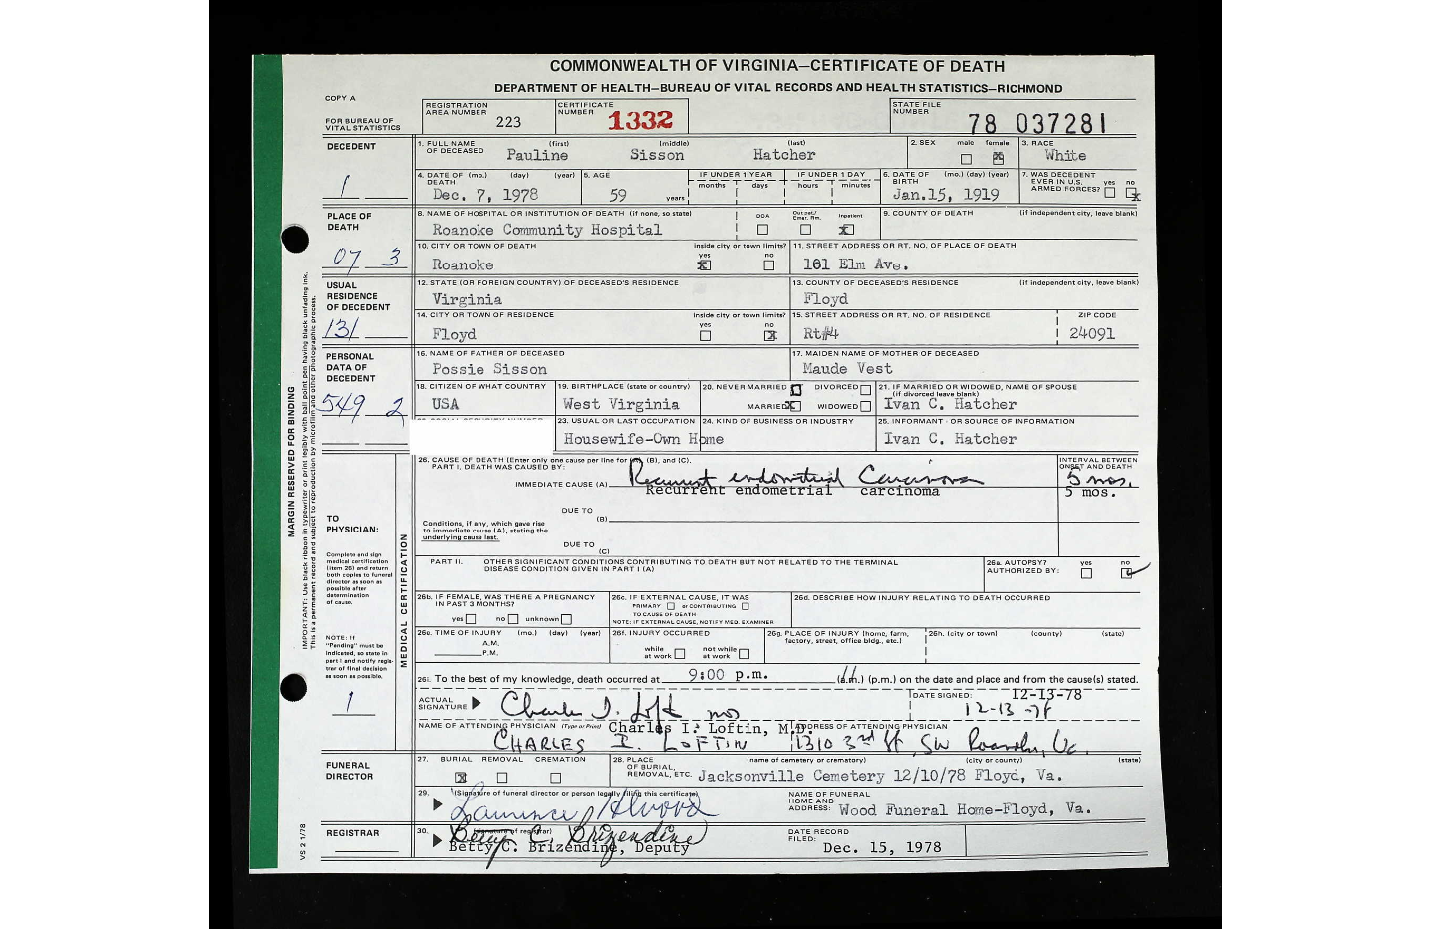 COMMONWEALTH OF VIRGINIA—CERTIFICATE OF DEATH
DEPARTMENT OF HEALTH—BUREAU OF VITAL RECORDS AND HEALTH STATISTICS—RICHMOND
COPY A
FOR BUREAU OF VITAL STATISTICS
REGISTRATION AREA NUMBER 223
CERTIFICATE NUMBER 1332
STATE FILE NUMBER 78 037281
DECEDENT
1. FULL NAME OF DECEASED (first) (middle) (last)
Pauline Sisson Hatcher
2. SEX male female
3. RACE White
4. DATE OF DEATH (mo.) (day) (year)
Dec. 7, 1978
5. AGE 59 years
IF UNDER 1 YEAR months days
IF UNDER 1 DAY hours minutes
6. DATE OF BIRTH (mo.) (day) (year)
Jan.15, 1919
7. WAS DECEDENT EVER IN U.S. ARMED FORCES? yes no
1
PLACE OF DEATH
8. NAME OF HOSPITAL OR INSTITUTION OF DEATH (if none, so state)
Roanoke Community Hospital
DOA Outpat/Emer. Rm. Inpatient
9. COUNTY OF DEATH (if independent city, leave blank)
07 3
10. CITY OR TOWN OF DEATH inside city or town limits? yes no
Roanoke
11. STREET ADDRESS OR RT. NO. OF PLACE OF DEATH
101 Elm Ave.
USUAL RESIDENCE OF DECEDENT
12. STATE (OR FOREIGN COUNTRY) OF DECEASED'S RESIDENCE
Virginia
13. COUNTY OF DECEASED'S RESIDENCE (if independent city, leave blank)
Floyd
131
14. CITY OR TOWN OF RESIDENCE inside city or town limits? yes no
Floyd
15. STREET ADDRESS OR RT. NO. OF RESIDENCE
Rt#4
ZIP CODE 24091
PERSONAL DATA OF DECEDENT
16. NAME OF FATHER OF DECEASED
Possie Sisson
17. MAIDEN NAME OF MOTHER OF DECEASED
Maude Vest
549 2
18. CITIZEN OF WHAT COUNTRY
USA
19. BIRTHPLACE (state or country)
West Virginia
20. NEVER MARRIED DIVORCED
MARRIED WIDOWED
21. IF MARRIED OR WIDOWED, NAME OF SPOUSE (if divorced leave blank)
Ivan C. Hatcher
23. USUAL OR LAST OCCUPATION 24. KIND OF BUSINESS OR INDUSTRY
Housewife-Own Home
25. INFORMANT - OR SOURCE OF INFORMATION
Ivan C. Hatcher
MARGIN RESERVED FOR BINDING
IMPORTANT: Use black ribbon in typewriter or print legibly with ball point pen having black unfading ink.
This is a permanent record and subject to reproduction by microfilm and other photographic process.
TO PHYSICIAN:
Complete and sign medical certification (item 26) and return both copies to funeral director as soon as possible after determination of cause.
NOTE: If "Pending" must be indicated, so state in part I and notify registrar of final decision as soon as possible.
1
MEDICAL CERTIFICATION
26. CAUSE OF DEATH (Enter only one cause per line for (A), (B), and (C).
PART I. DEATH WAS CAUSED BY:
INTERVAL BETWEEN ONSET AND DEATH
IMMEDIATE CAUSE (A) Recurrent endometrial Carcinoma 5 mos.
Recurrent endometrial carcinoma 5 mos.
DUE TO (B)
Conditions, if any, which gave rise to immediate cause (A), stating the underlying cause last.
DUE TO (C)
PART II. OTHER SIGNIFICANT CONDITIONS CONTRIBUTING TO DEATH BUT NOT RELATED TO THE TERMINAL DISEASE CONDITION GIVEN IN PART I (A)
26a. AUTOPSY? AUTHORIZED BY: yes no
26b. IF FEMALE, WAS THERE A PREGNANCY IN PAST 3 MONTHS? yes no unknown
26c. IF EXTERNAL CAUSE, IT WAS PRIMARY or CONTRIBUTING TO CAUSE OF DEATH
NOTE: IF EXTERNAL CAUSE, NOTIFY MED. EXAMINER
26d. DESCRIBE HOW INJURY RELATING TO DEATH OCCURRED
26e. TIME OF INJURY (mo.) (day) (year) A.M. P.M.
26f. INJURY OCCURRED while at work not while at work
26g. PLACE OF INJURY (home, farm, factory, street, office bldg., etc.)
26h. (city or town) (county) (state)
26i. To the best of my knowledge, death occurred at 9:00 p.m. (a.m.) (p.m.) on the date and place and from the cause(s) stated.
ACTUAL SIGNATURE Charles I. Loftin MD
DATE SIGNED: 12-13-78
12-13-78
NAME OF ATTENDING PHYSICIAN (Type or Print) Charles I. Loftin, M.D.
CHARLES I. LOFTIN
ADDRESS OF ATTENDING PHYSICIAN
1310 3rd St SW Roanoke, Va.
FUNERAL DIRECTOR
27. BURIAL REMOVAL CREMATION
28. PLACE OF BURIAL, REMOVAL, ETC. name of cemetery or crematory) (city or county) (state)
Jacksonville Cemetery 12/10/78 Floyd, Va.
29. (Signature of funeral director or person legally filing this certificate)
NAME OF FUNERAL HOME AND ADDRESS: Wood Funeral Home-Floyd, Va.
REGISTRAR
30. (signature of registrar)
Betty C. Brizendine
Betty C. Brizendine, Deputy
DATE RECORD FILED: Dec. 15, 1978
VS 2 1/78